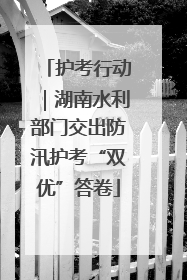 「护考行动
｜湖南水利
部门交出防
汛护考“双
优”答卷」